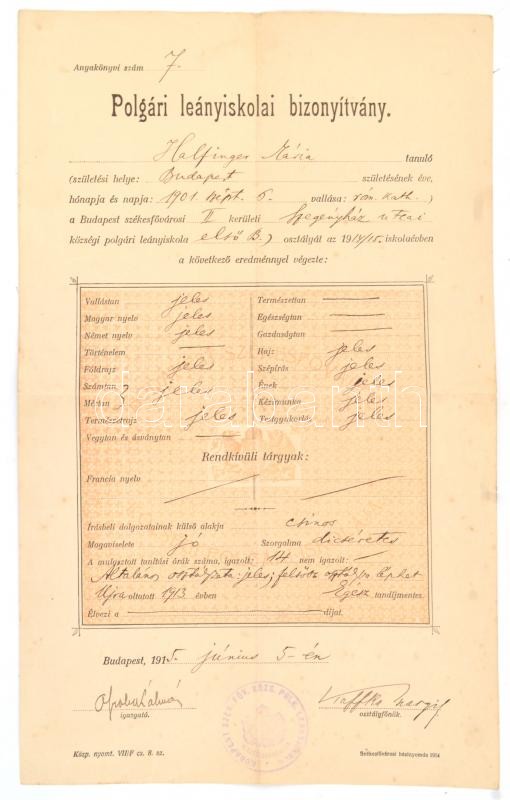 Anyakönyvi szám 7.
Polgári leányiskolai bizonyítvány.
Halfinger Mária tanuló
(születési helye: Budapest születésének éve,
hónapja és napja: 1901. szept. 6. vallása: róm. kath.)
a Budapest székesfővárosi II kerületi Szegényház utcai
községi polgári leányiskola első B.) osztályát az 1914/15. iskolaévben
a következő eredménnyel végezte:
Vallástan jeles
Magyar nyelv jeles
Német nyelv jeles
Történelem —
Földrajz jeles
Számtan } jeles
Mértan
Természetrajz jeles
Vegytan és ásványtan —
Természettan —
Egészségtan —
Gazdaságtan —
Rajz jeles
Szépírás jeles
Ének jeles
Kézimunka jeles
Testgyakorlás jeles
Rendkívüli tárgyak:
Francia nyelv
Írásbeli dolgozatainak külső alakja csinos
Magaviselete jó Szorgalma dicséretes
A mulasztott tanítási órák száma, igazolt: 14 nem igazolt: —
Általános osztályzata: jeles; felsőbb osztályba léphet
Újra oltatott 1913. évben Egész tandíjmentes.
Élvezi a díjat.
Budapest, 1915. június 5-én
Kálmán
igazgató.
Kaffka Margit
osztályfőnök.
Közp. nyomt. VII/F cz. 8. sz.
Székesfővárosi házinyomda 1914
darabanth